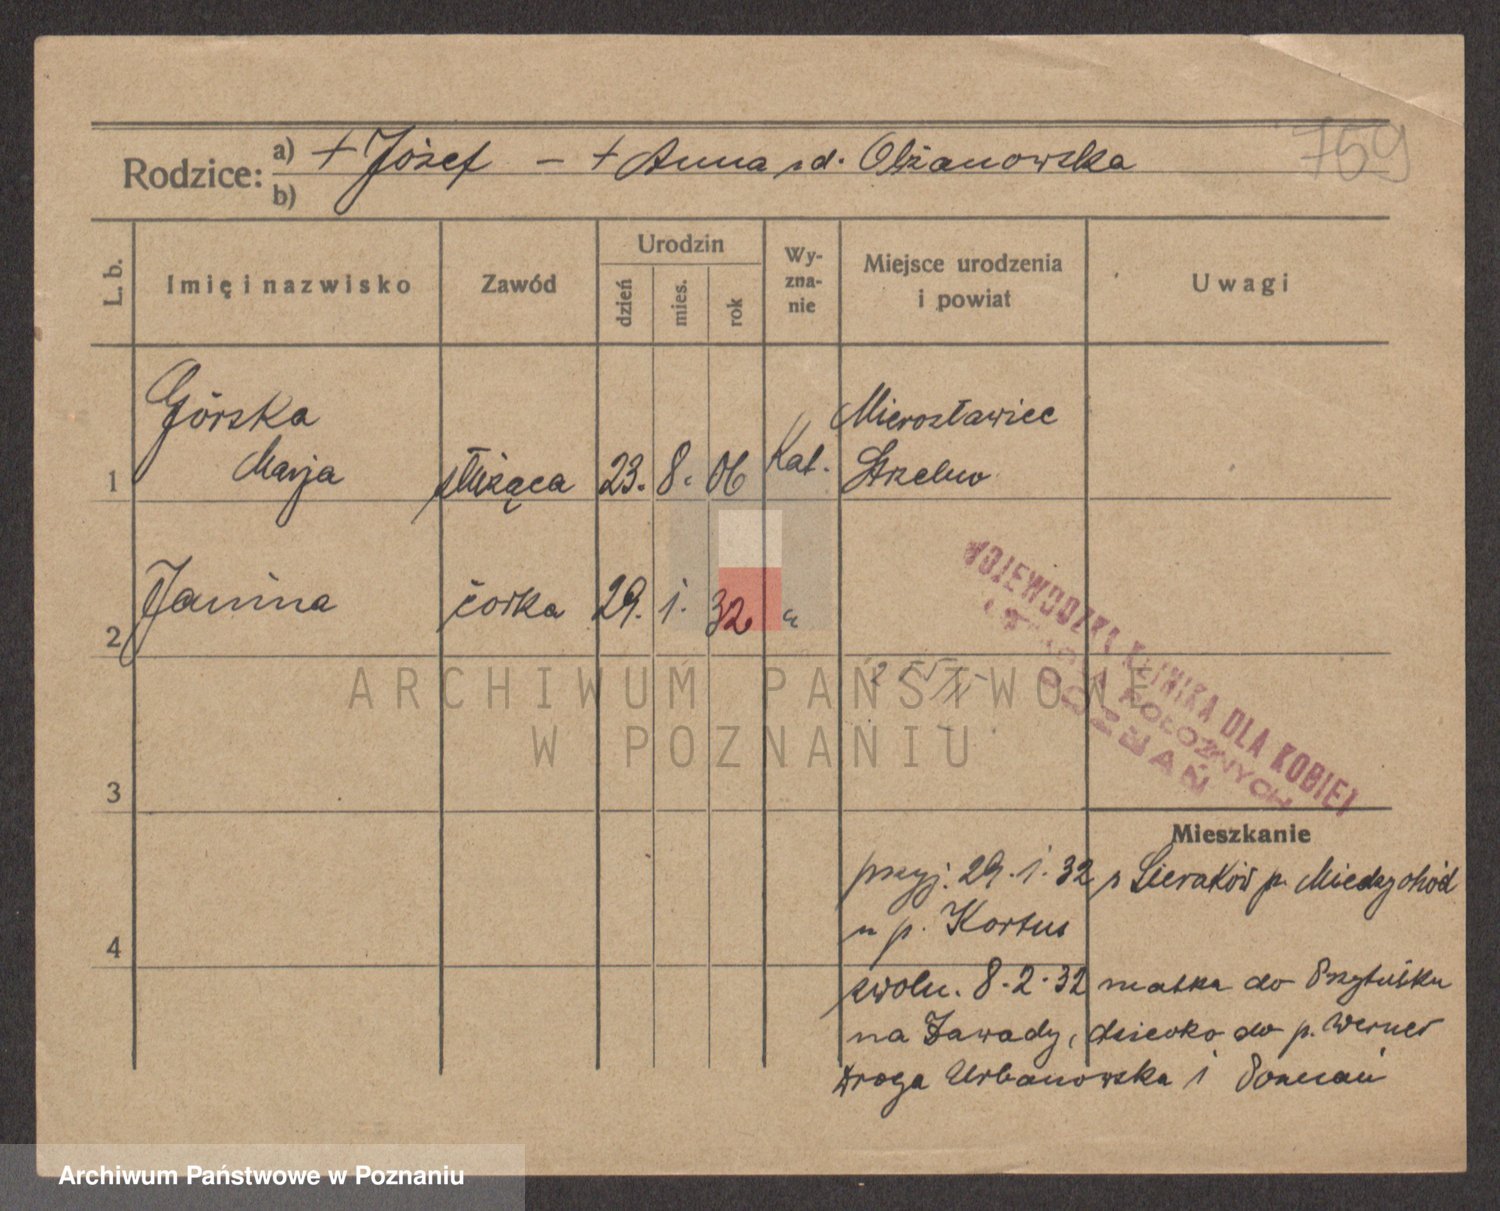 759
Rodzice: a) + Józef - + Anna zd. Olżanowska
b)
L. b.
Imię i nazwisko
Zawód
Urodzin
dzień
mies.
rok
Wy-
zna-
nie
Miejsce urodzenia
i powiat
Uwagi
1
Górska
Marja
służąca
23.
8.
06
Kat.
Mirosławiec
Strzelno
2
Janina
córka
29.
1.
32
"
WOJEWÓDZKA KLINIKA DLA KOBIET
POŁOŻNYCH
POZNAŃ
ARCHIWUM PAŃSTWOWE
W POZNANIU
3
Mieszkanie
przyj. 29.1.32 z Sieraków p. Międzychód
u p. Kortus
4
zwoln. 8.2.32 matka do Przytułku
na Zawady, dziecko do p. Werner
Droga Urbanowska 1 Poznań
Archiwum Państwowe w Poznaniu